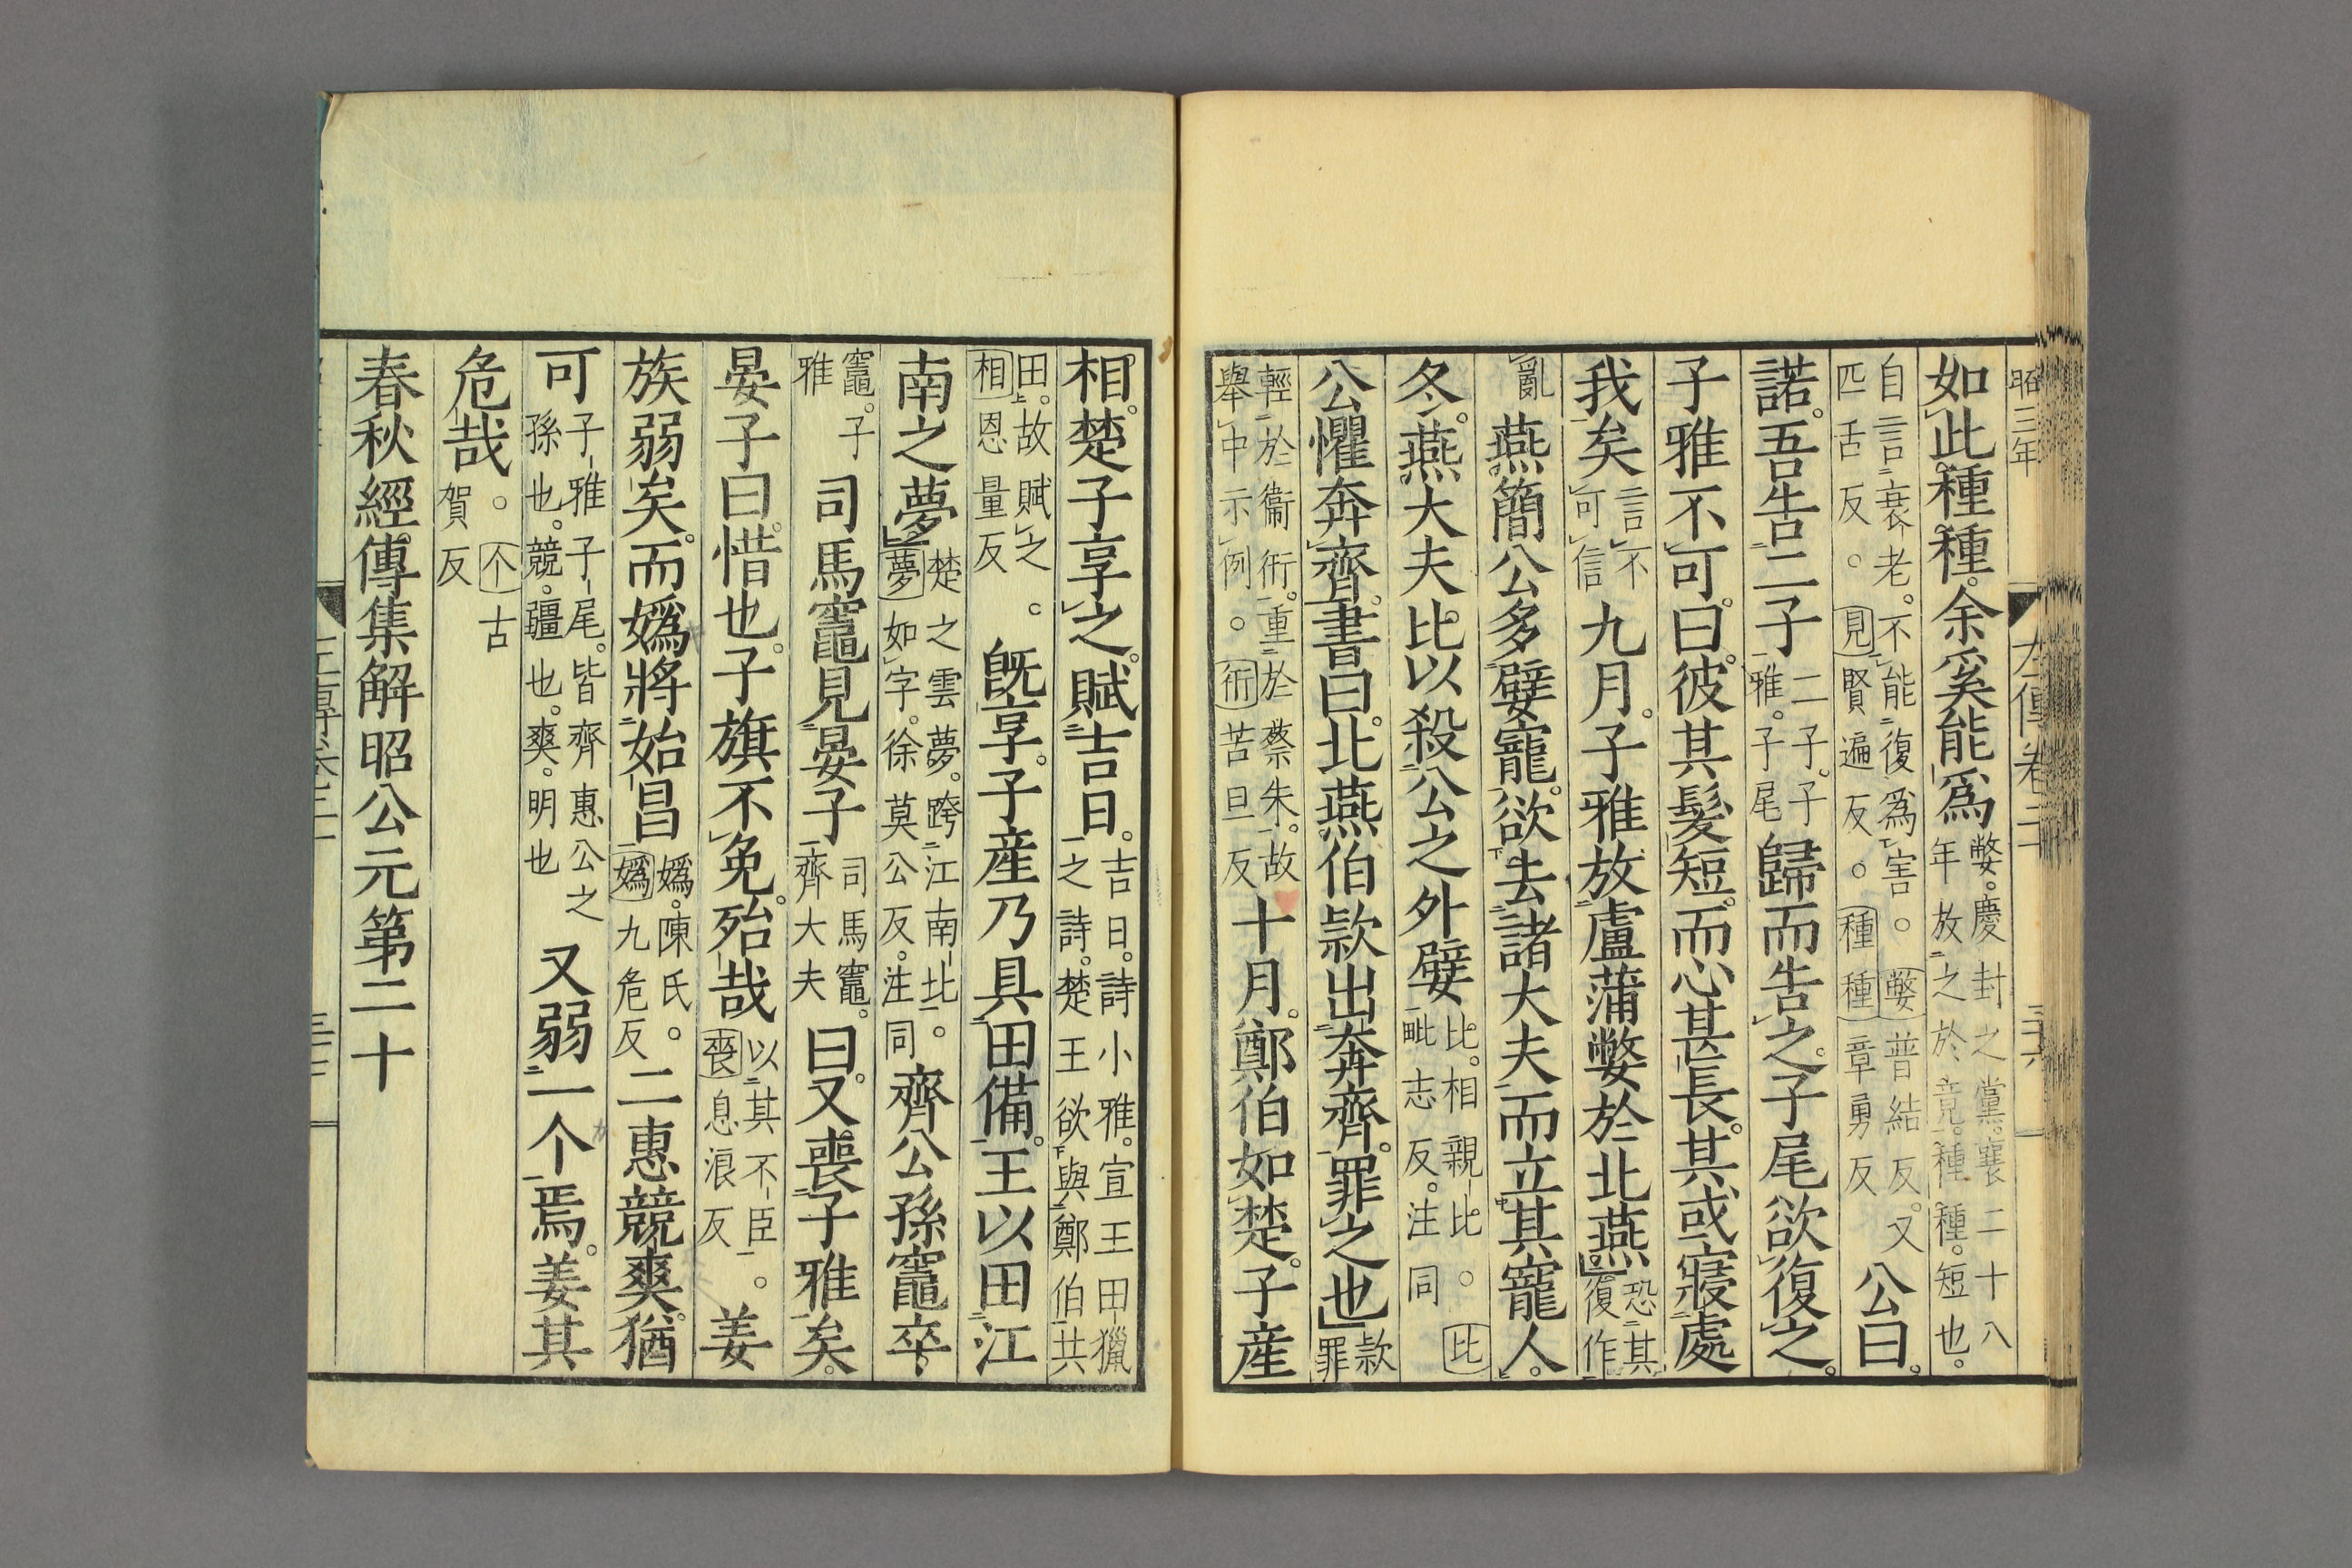 昭三年
左傳卷二
如此種種。余奚能爲嫳。慶封之黨。襄二十八年放之於竟。種種。短也。
自言衰老。不能復爲害。嫳普結反。又匹舌反。見賢遍反。種種章勇反公曰。
諾。吾告二子二子。子雅。子尾歸而告之。子尾欲復之。
子雅不可。曰。彼其髮短。而心甚長。其或寢處
我矣言不可信九月。子雅放盧蒲嫳於北燕。恐其復作
亂燕簡公多嬖寵。欲去諸大夫。而立其寵人。
冬。燕大夫比。以殺公之外嬖比。相親比。比毗志反。注同
公懼奔齊。書曰。北燕伯款出奔齊。罪之也款罪
輕於衞衎。重於蔡朱。故舉中示例。衎苦旦反十月。鄭伯如楚。子産
相。楚子享之。賦吉日。吉日。詩小雅。宣王田獵之詩。楚王欲與鄭伯共
田。故賦之。相息量反既享。子産乃具田備。王以田江
南之夢楚之雲夢。跨江南北。夢如字。徐莫公反。注同齊公孫竈卒。
竈。子雅司馬竈見晏子司馬竈。齊大夫曰。又喪子雅矣。
晏子曰。惜也。子旗不免。殆哉以其不臣。喪息浪反姜
族弱矣。而嬀將始昌嬀。陳氏。嬀九危反二惠競爽。猶
可子雅子尾。皆齊惠公之孫也。競。疆也。爽。明也又弱一个焉。姜其
危哉。个古賀反
春秋經傳集解昭公元第二十